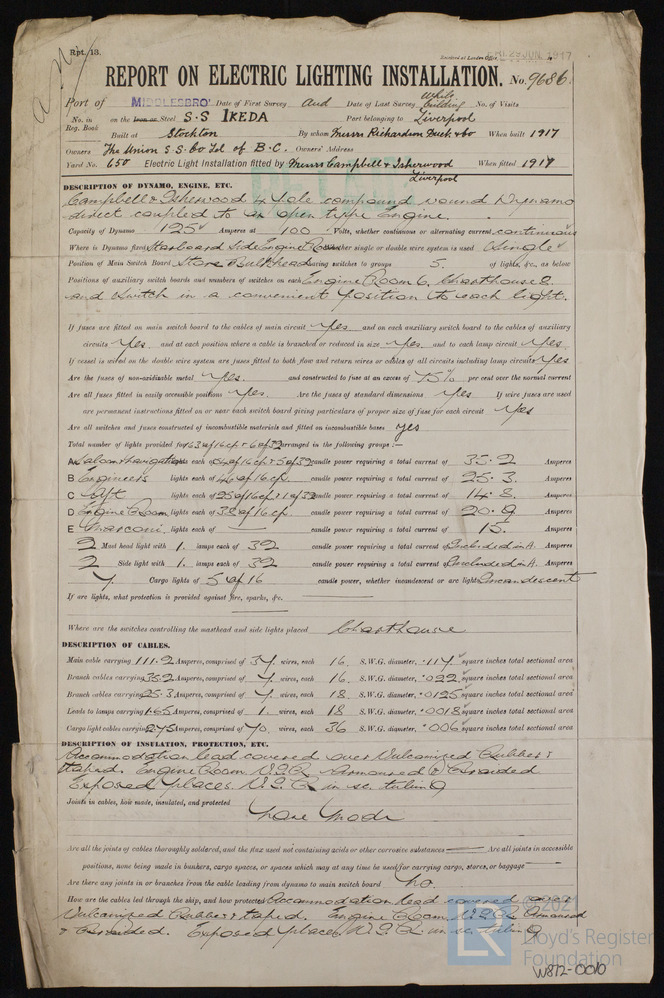 Rpt. 13.
Received at London Office FRI. 29 JUN. 1917
REPORT ON ELECTRIC LIGHTING INSTALLATION. No. 9686
Port of MIDDLESBRO' Date of First Survey and Date of Last Survey while building No. of Visits
No. in Reg. Book on the Iron or Steel S.S IKEDA Port belonging to Liverpool
Built at Stockton By whom Messrs Richardson Duck & Co When built 1917
Owners The Union S.S. Co Ld of B.C. Owners' Address
Yard No. 650 Electric Light Installation fitted by Messrs Campbell & Isherwood Liverpool When fitted 1917
DESCRIPTION OF DYNAMO, ENGINE, ETC.
Campbell & Isherwood 4 Pole compound wound Dynamo
direct coupled to an open type Engine.
Capacity of Dynamo 125 Amperes at 100 Volts, whether continuous or alternating current continuous
Where is Dynamo fixed Starboard Side Engine Room Whether single or double wire system is used Single
Position of Main Switch Board Stokehold Bulkhead having switches to groups 5. of lights, &c., as below
Positions of auxiliary switch boards and numbers of switches on each Engine Room 6, Charthouse 2.
and switch in a convenient position to each light.
If fuses are fitted on main switch board to the cables of main circuit Yes and on each auxiliary switch board to the cables of auxiliary
circuits Yes and at each position where a cable is branched or reduced in size Yes and to each lamp circuit Yes
If vessel is wired on the double wire system are fuses fitted to both flow and return wires or cables of all circuits including lamp circuits Yes
Are the fuses of non-oxidizable metal Yes. and constructed to fuse at an excess of 75% per cent over the normal current
Are all fuses fitted in easily accessible positions Yes. Are the fuses of standard dimensions Yes If wire fuses are used
are permanent instructions fitted on or near each switch board giving particulars of proper size of fuse for each circuit Yes
Are all switches and fuses constructed of incombustible materials and fitted on incombustible bases yes
Total number of lights provided for 163 of 16cp + 6 of 32 arranged in the following groups :—
A Saloon & Navigation lights each of 54 of 16cp + 5 of 32 candle power requiring a total current of 35.2 Amperes
B Engineers lights each of 46 of 16cp. candle power requiring a total current of 25.3. Amperes
C Aft lights each of 25 of 16cp + 1 of 32 candle power requiring a total current of 14.8. Amperes
D Engine Room lights each of 38 of 16.cp. candle power requiring a total current of 20.9 Amperes
E Marconi lights each of — candle power requiring a total current of 15. Amperes
2 Mast head light with 1. lamps each of 32 candle power requiring a total current of Included in A. Amperes
2 Side light with 1. lamps each of 32 candle power requiring a total current of Included in A. Amperes
7 Cargo lights of 5 of 16 candle power, whether incandescent or arc lights Incandescent
If arc lights, what protection is provided against fire, sparks, &c.
Where are the switches controlling the masthead and side lights placed Charthouse
DESCRIPTION OF CABLES.
Main cable carrying 111.2 Amperes, comprised of 37 wires, each 16. S.W.G. diameter, .117 square inches total sectional area
Branch cables carrying 35.2 Amperes, comprised of 7 wires, each 16. S.W.G. diameter, .022 square inches total sectional area
Branch cables carrying 25.3 Amperes, comprised of 7 wires, each 18 S.W.G. diameter, .0125 square inches total sectional area
Leads to lamps carrying 1.65 Amperes, comprised of 1. wires, each 18 S.W.G. diameter, .0018 square inches total sectional area
Cargo light cables carrying 2.75 Amperes, comprised of 70 wires, each 36 S.W.G. diameter, .006 square inches total sectional area
DESCRIPTION OF INSULATION, PROTECTION, ETC.
Accommodation lead covered over Vulcanized Rubber &
taped. Engine Room V.I.R. Armoured & Braided
Exposed places V.I.R. in sc. tubing
Joints in cables, how made, insulated, and protected
none made
Are all the joints of cables thoroughly soldered, and the flux used not containing acids or other corrosive substances — Are all joints in accessible
positions, none being made in bunkers, cargo spaces, or spaces which may at any time be used for carrying cargo, stores, or baggage —
Are there any joints in or branches from the cable leading from dynamo to main switch board no.
How are the cables led through the ship, and how protected Accommodation lead covered over
Vulcanized Rubber & taped. Engine Room V.I.R. Armoured
& Braided. Exposed places V.I.R. in sc. tubing
© 2021
LR Lloyd's Register
Foundation
W872-0010